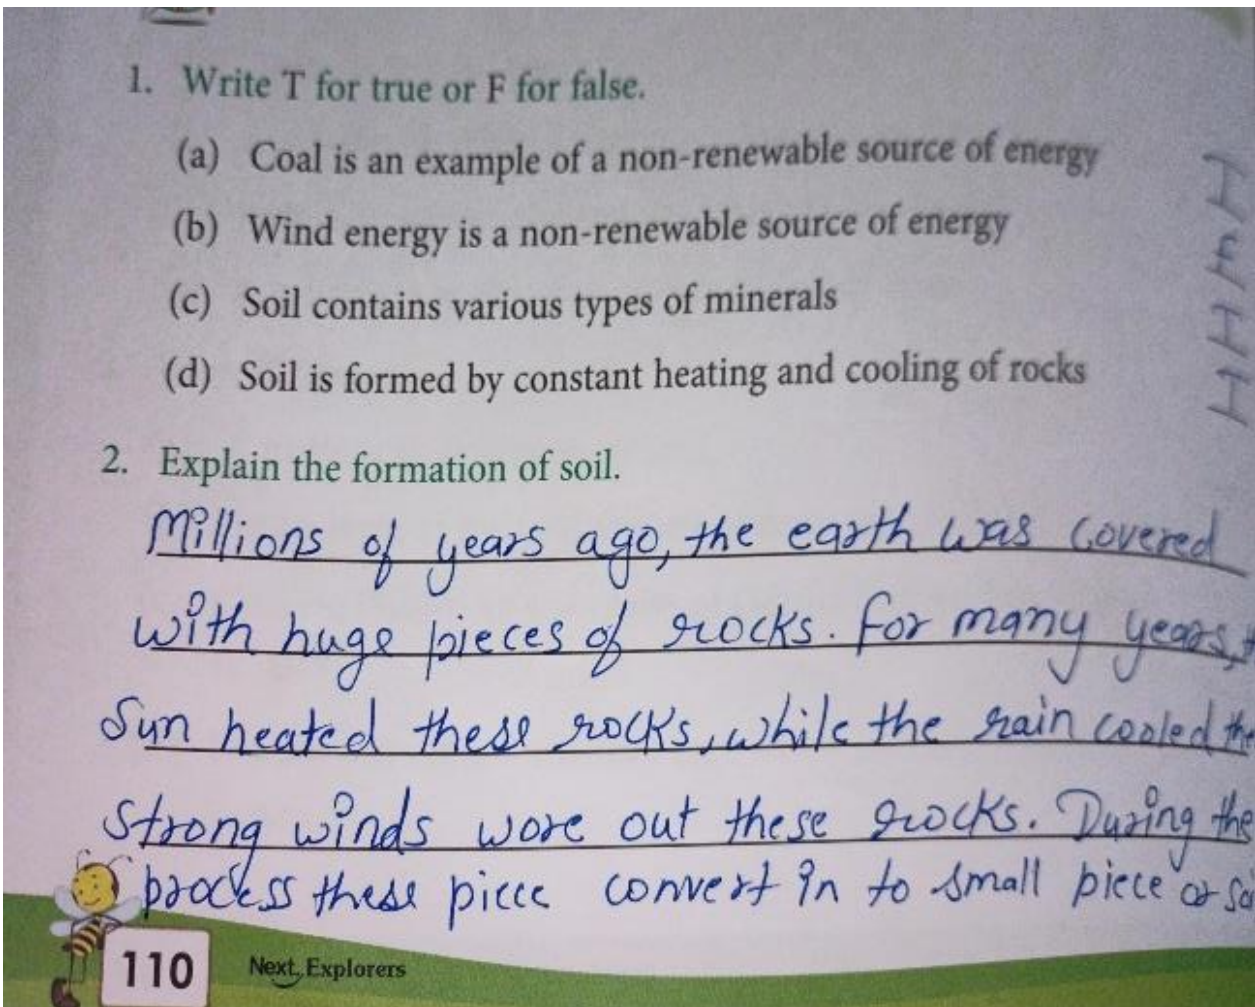 1. Write T for true or F for false.
(a) Coal is an example of a non-renewable source of energy
(b) Wind energy is a non-renewable source of energy
(c) Soil contains various types of minerals
(d) Soil is formed by constant heating and cooling of rocks
2. Explain the formation of soil.
Millions of years ago, the earth was covered
with huge pieces of rocks. For many years,
Sun heated these rocks, while the rain cooled
Strong winds wore out these rocks. During the
process these piece convert in to small piece or
110 Next Explorers